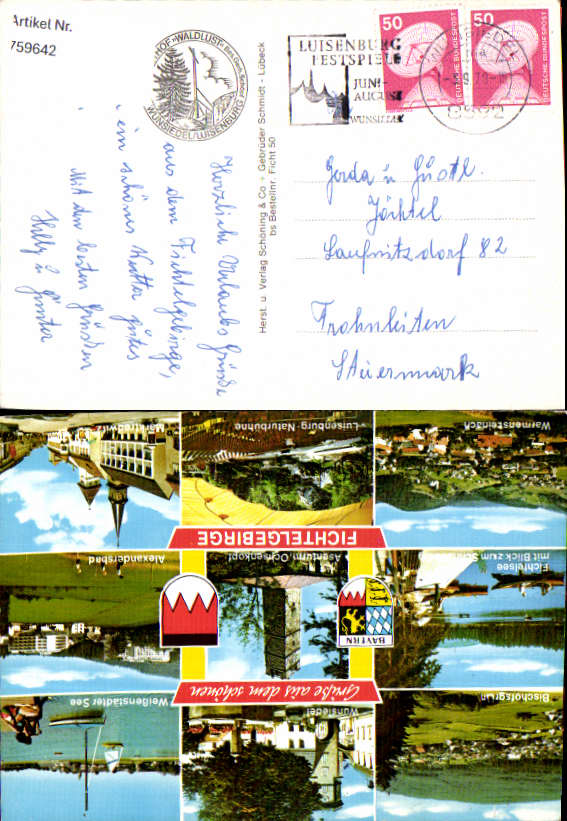 Artikel Nr.
759642
HOF »WALDLUST«
WUNSIEDEL/LUISENBURG
LUISENBURG
FESTSPIELE
JUNI-
AUGUST
WUNSIEDEL
50
DEUTSCHE BUNDESPOST
50
DEUTSCHE BUNDESPOST
8592
Herst. u. Verlag Schöning & Co + Gebrüder Schmidt - Lübeck
bs Bestellnr. Ficht 50
Herzliche Urlaubs Grüße
aus dem Fichtelgebirge,
ein schönes Wetter gutes
Mit den besten Grüßen
Helly u Günter
Gerda u Gustl.
Jöchtel
Laufnitzdorf 82
Frohnleiten
Steiermark
Bischofsgrün
Wunsiedel
Weißenstädter See
Grüße aus dem schönen
BAYERN
Fichtelsee
mit Blickzum
Asenturm-Ochsenkopf
Alexandersbad
FICHTELGEBIRGE
Warmensteinach
Luisenburg-Naturbühne
Marktredwitz